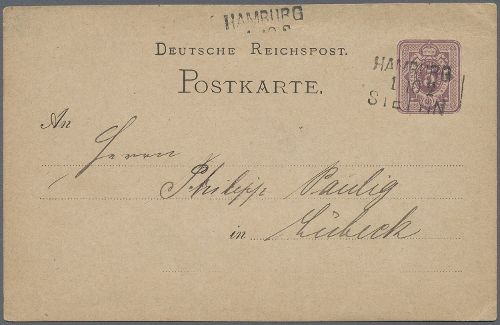 HAMBURG
DEUTSCHE REICHSPOST.
HAMBURG
STETTIN
POSTKARTE.
An
Herrn
Philipp Paulig
in Lübeck